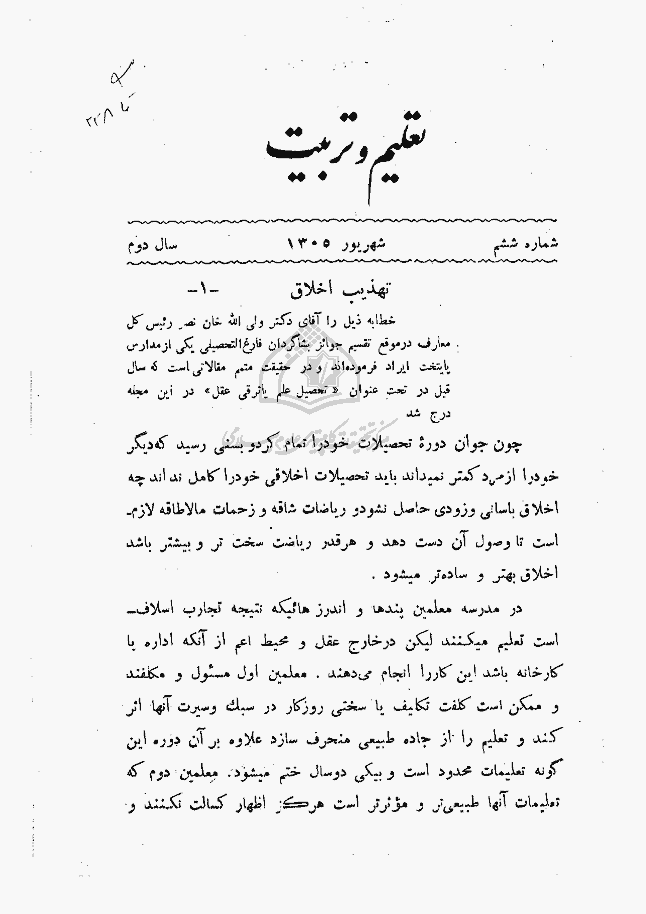 تا ۲۲۸
تعلیم و تربیت
شماره ششم شهریور ۱۳۰۵ سال دوم
تهذیب اخلاق -۱-
خطابه ذیل را آقای دکتر ولی الله خان نصر رئیس کل
معارف درموقع تقسیم جوائز بشاگردان فارغ‌التحصیلی یکی ازمدارس
پایتخت ایراد فرموده‌اند و در حقیقت متمم مقالاتی است که سال
قبل در تحت عنوان «تحصیل علم یاترقی عقل» در این مجله
درج شد
چون جوان دورهٔ تحصیلات خودرا تمام کردو بسنی رسید که‌دیگر
خودرا ازمرد کمتر نمیداند باید تحصیلات اخلاقی خودرا کامل نداند چه
اخلاق باسانی وزودی حاصل نشودو ریاضات شاقه و زحمات مالاطاقه لازم-
است تا وصول آن دست دهد و هرقدر ریاضت سخت تر و بیشتر باشد
اخلاق بهتر و ساده‌تر میشود .
در مدرسه معلمین پندها و اندرز هائیکه نتیجه تجارب اسلاف-
است تعلیم میکنند لیکن درخارج عقل و محیط اعم از آنکه اداره یا
کارخانه باشد این کاررا انجام می‌دهند . معلمین اول مسئول و مکلفند
و ممکن است کلفت تکالیف یا سختی روزکار در سبك وسیرت آنها اثر
کند و تعلیم را از جاده طبیعی منحرف سازد علاوه بر آن دوره این
گونه تعلیمات محدود است و بیکی دوسال ختم میشود. معلمین دوم که
تعلیمات آنها طبیعی‌تر و مؤثرتر است هرگز اظهار کسالت نکنند و